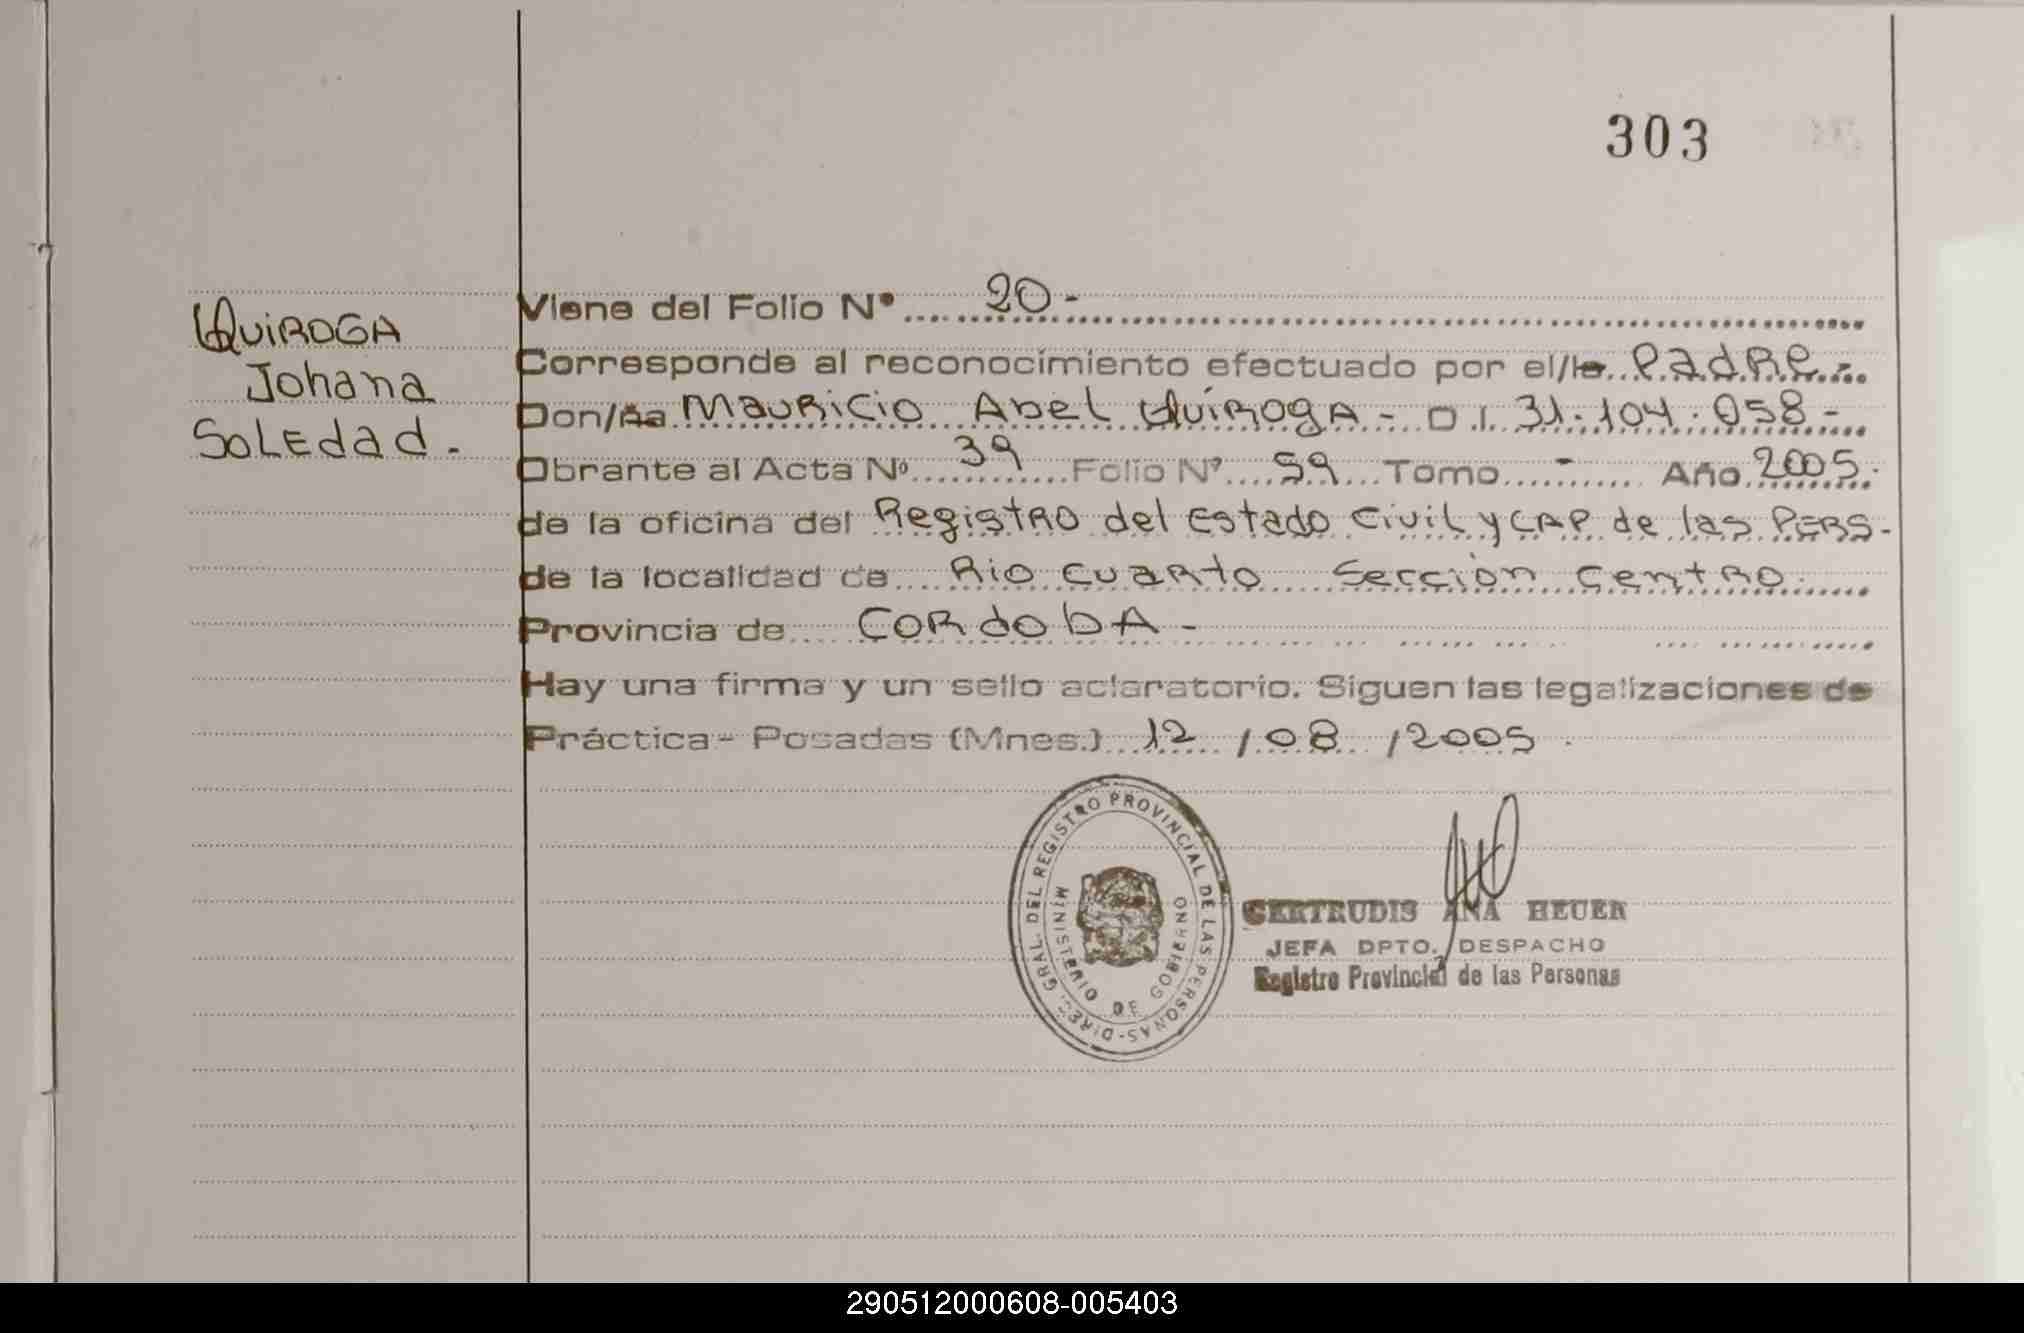 303
QUIROGA
Johana
SOLEdad.
Viene del Folio Nº 20-
Corresponde al reconocimiento efectuado por el/la PadRe.-
Don/ña MauRicio Abel QuiROgA - D.I. 31.104.058-
Obrante al Acta Nº 39 Folio Nº 59 Tomo - Año 2005.
de la oficina del RegistRO del Estado Civil y CAP de las PERS-
de la localidad de Rio Cuarto Sección CentRO.
Provincia de CORdobA-
Hay una firma y un sello aclaratorio. Siguen las legalizaciones de
Práctica- Posadas (Mnes.) 12 / 08 / 2005.
DIREC. GRAL. DEL REGISTRO PROVINCIAL DE LAS PERSONAS-
MINISTERIO DE GOBIERNO
GERTRUDIS ANA HEUER
JEFA DPTO. DESPACHO
Registro Provincial de las Personas
290512000608-005403